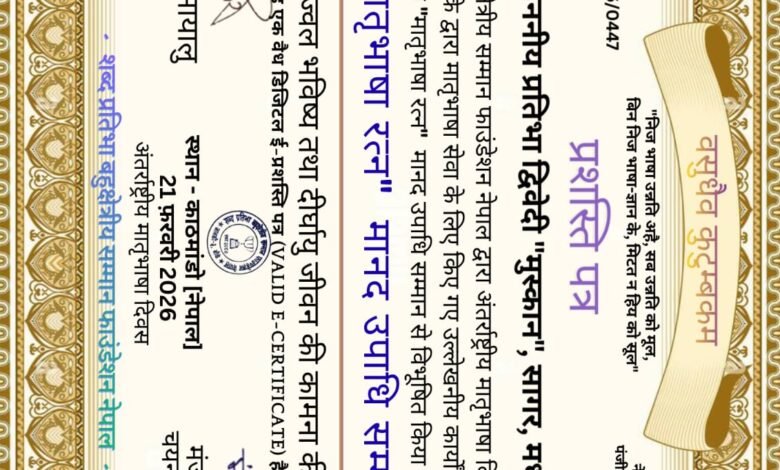 वसुधैव कुटुम्बकम
"निज भाषा उन्नति अहै, सब उन्नति को मूल,
बिन निज भाषा-ज्ञान के, मिटत न हिय को सूल"
/0447
प्रशस्ति पत्र
प्रतिभा द्विवेदी "मुस्कान", सागर,
सम्मान फाउंडेशन नेपाल द्वारा अंतर्राष्ट्रीय मातृभाषा
के द्वारा मातृभाषा सेवा के लिए किए गए उल्लेखनीय
"मातृभाषा रत्न" मानद उपाधि सम्मान से विभूषित किया
रत्न" मानद उपाधि
भविष्य तथा दीर्घायु जीवन की कामना
एक वैध डिजिटल ई-प्रशस्ति पत्र (VALID E-CERTIFICATE) है
स्थान - काठमांडो [नेपाल]
21 फरवरी 2026
अंतर्राष्ट्रीय मातृभाषा दिवस
- शब्द प्रतिभा बहुक्षेत्रीय सम्मान फाउंडेशन नेपाल -